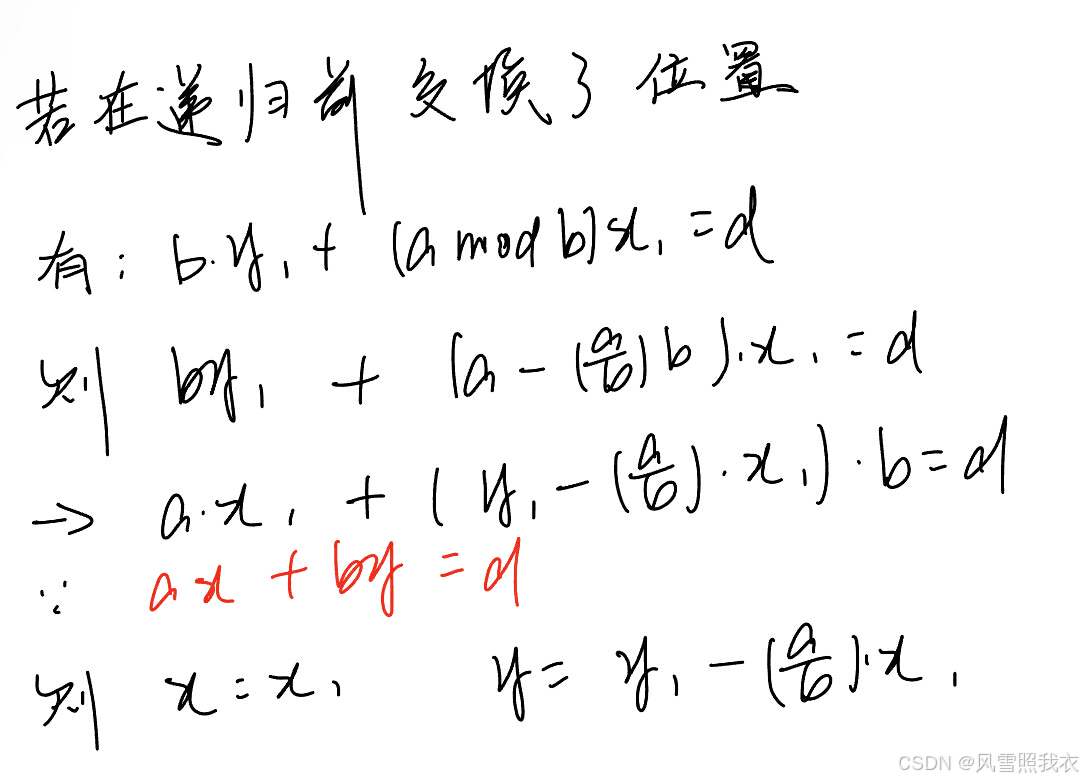 若在递归前交换了位置
有: b·y₁ + (a mod b)x₁ = d
则 by₁ + (a - (a/b)b)·x₁ = d
→ a·x₁ + (y₁ - (a/b)·x₁)·b = d
∵ ax + by = d
则 x = x₁ y = y₁ - (a/b)·x₁
CSDN @风雪照我衣